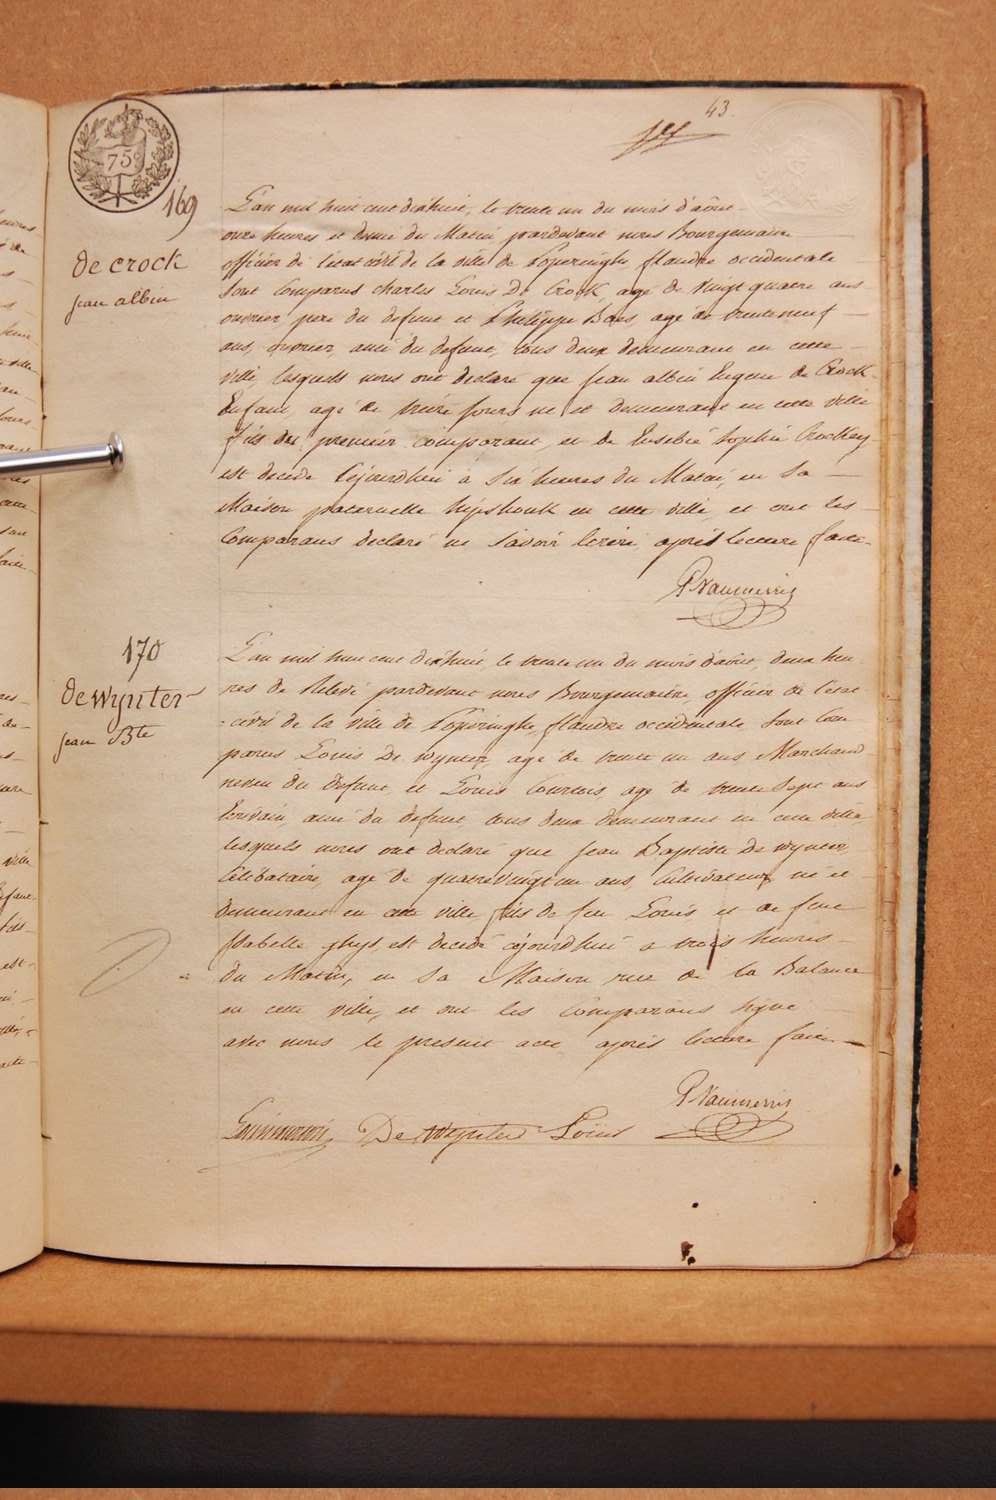 43.
75
169
de crock
jean albin
L'an mil huit cent dixhuit, le trente un du mois d'août
onze heures et demi du Matin pardevant nous Bourgemaitre
officier de l'état civil de la ville de Poperinghe, flandre occidentale
sont Comparus Charles Louis De Crock, agé de vingt quatre ans
ouvrier, pere du defunt et Philippe Baes, agé de trente neuf
ans, ouvrier, ami du defunt, tous deux demeurant en cette
ville, lesquels nous ont declaré que Jean albin Eugene de Crock
Enfant, agé de treize jours né et demeurant en cette ville
fils du premier comparant, et de Eusebie Sophie
est decédé cejourdhui à Six heures du Matin, en Sa
Maison paternelle en cette ville, et ont les
Comparans declaré ne Savoir Ecrire, après lecture faite
PVanmerris
170
de wynter
jean Bte
L'an mil huit cent dixhuit, le trente un du mois d'août, deux heu
res de Relevé pardevant nous Bourgemaitre, officier de l'etat
civil de la ville de Poperinghe, flandre occidentale Sont Com
parus Louis De wynter, agé de trente un ans Marchand
neveu du defunt, et Louis agé de trente Sept ans
Ecrivain, ami du defunt tous deux demeurant en cette ville,
lesquels nous ont declaré que Jean Baptiste De wynter,
Célibataire, agé de quatrevingt un ans, Cultivateur né et
demeurant en cette ville fils de feu Louis et de feue
Isabelle ghys, est decédé cejourdhui a trois heures
du Matin, en Sa Maison rue de la Balance
en cette ville, et ont les Comparans Signé
avec nous le present acte après lecture faite
PVanmerris
De wynter Louis